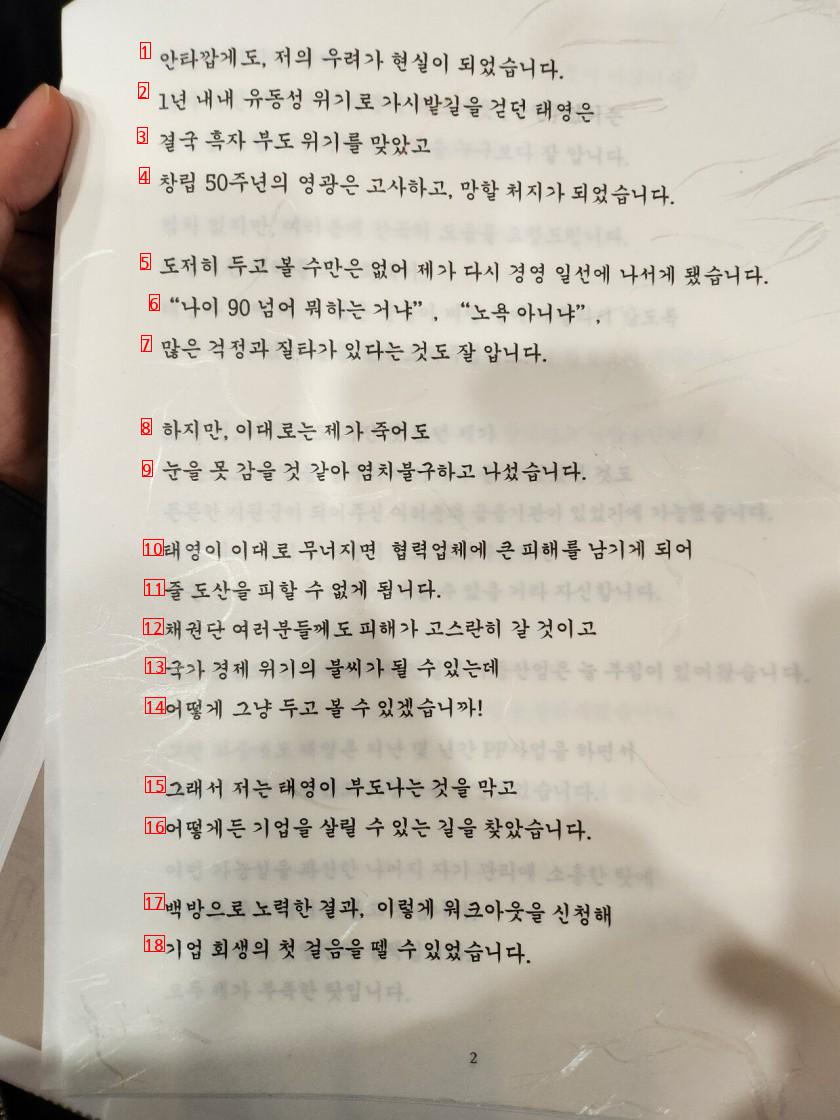 1 안타깝게도, 저의 우려가 현실이 되었습니다.
2 1년 내내 유동성 위기로 가시밭길을 걷던 태영은
3 결국 흑자 부도 위기를 맞았고
4 창립 50주년의 영광은 고사하고, 망할 처지가 되었습니다.
5 도저히 두고 볼 수만은 없어 제가 다시 경영 일선에 나서게 됐습니다.
6 “나이 90 넘어 뭐하는 거냐” , “노욕 아니냐” ,
7 많은 걱정과 질타가 있다는 것도 잘 압니다.
8 하지만, 이대로는 제가 죽어도
9 눈을 못 감을 것 같아 염치불구하고 나섰습니다.
10 태영이 이대로 무너지면 협력업체에 큰 피해를 남기게 되어
11 줄 도산을 피할 수 없게 됩니다.
12 채권단 여러분들께도 피해가 고스란히 갈 것이고
13 국가 경제 위기의 불씨가 될 수 있는데
14 어떻게 그냥 두고 볼 수 있겠습니까!
15 그래서 저는 태영이 부도나는 것을 막고
16 어떻게든 기업을 살릴 수 있는 길을 찾았습니다.
17 백방으로 노력한 결과, 이렇게 워크아웃을 신청해
18 기업 회생의 첫 걸음을 뗄 수 있었습니다.
2